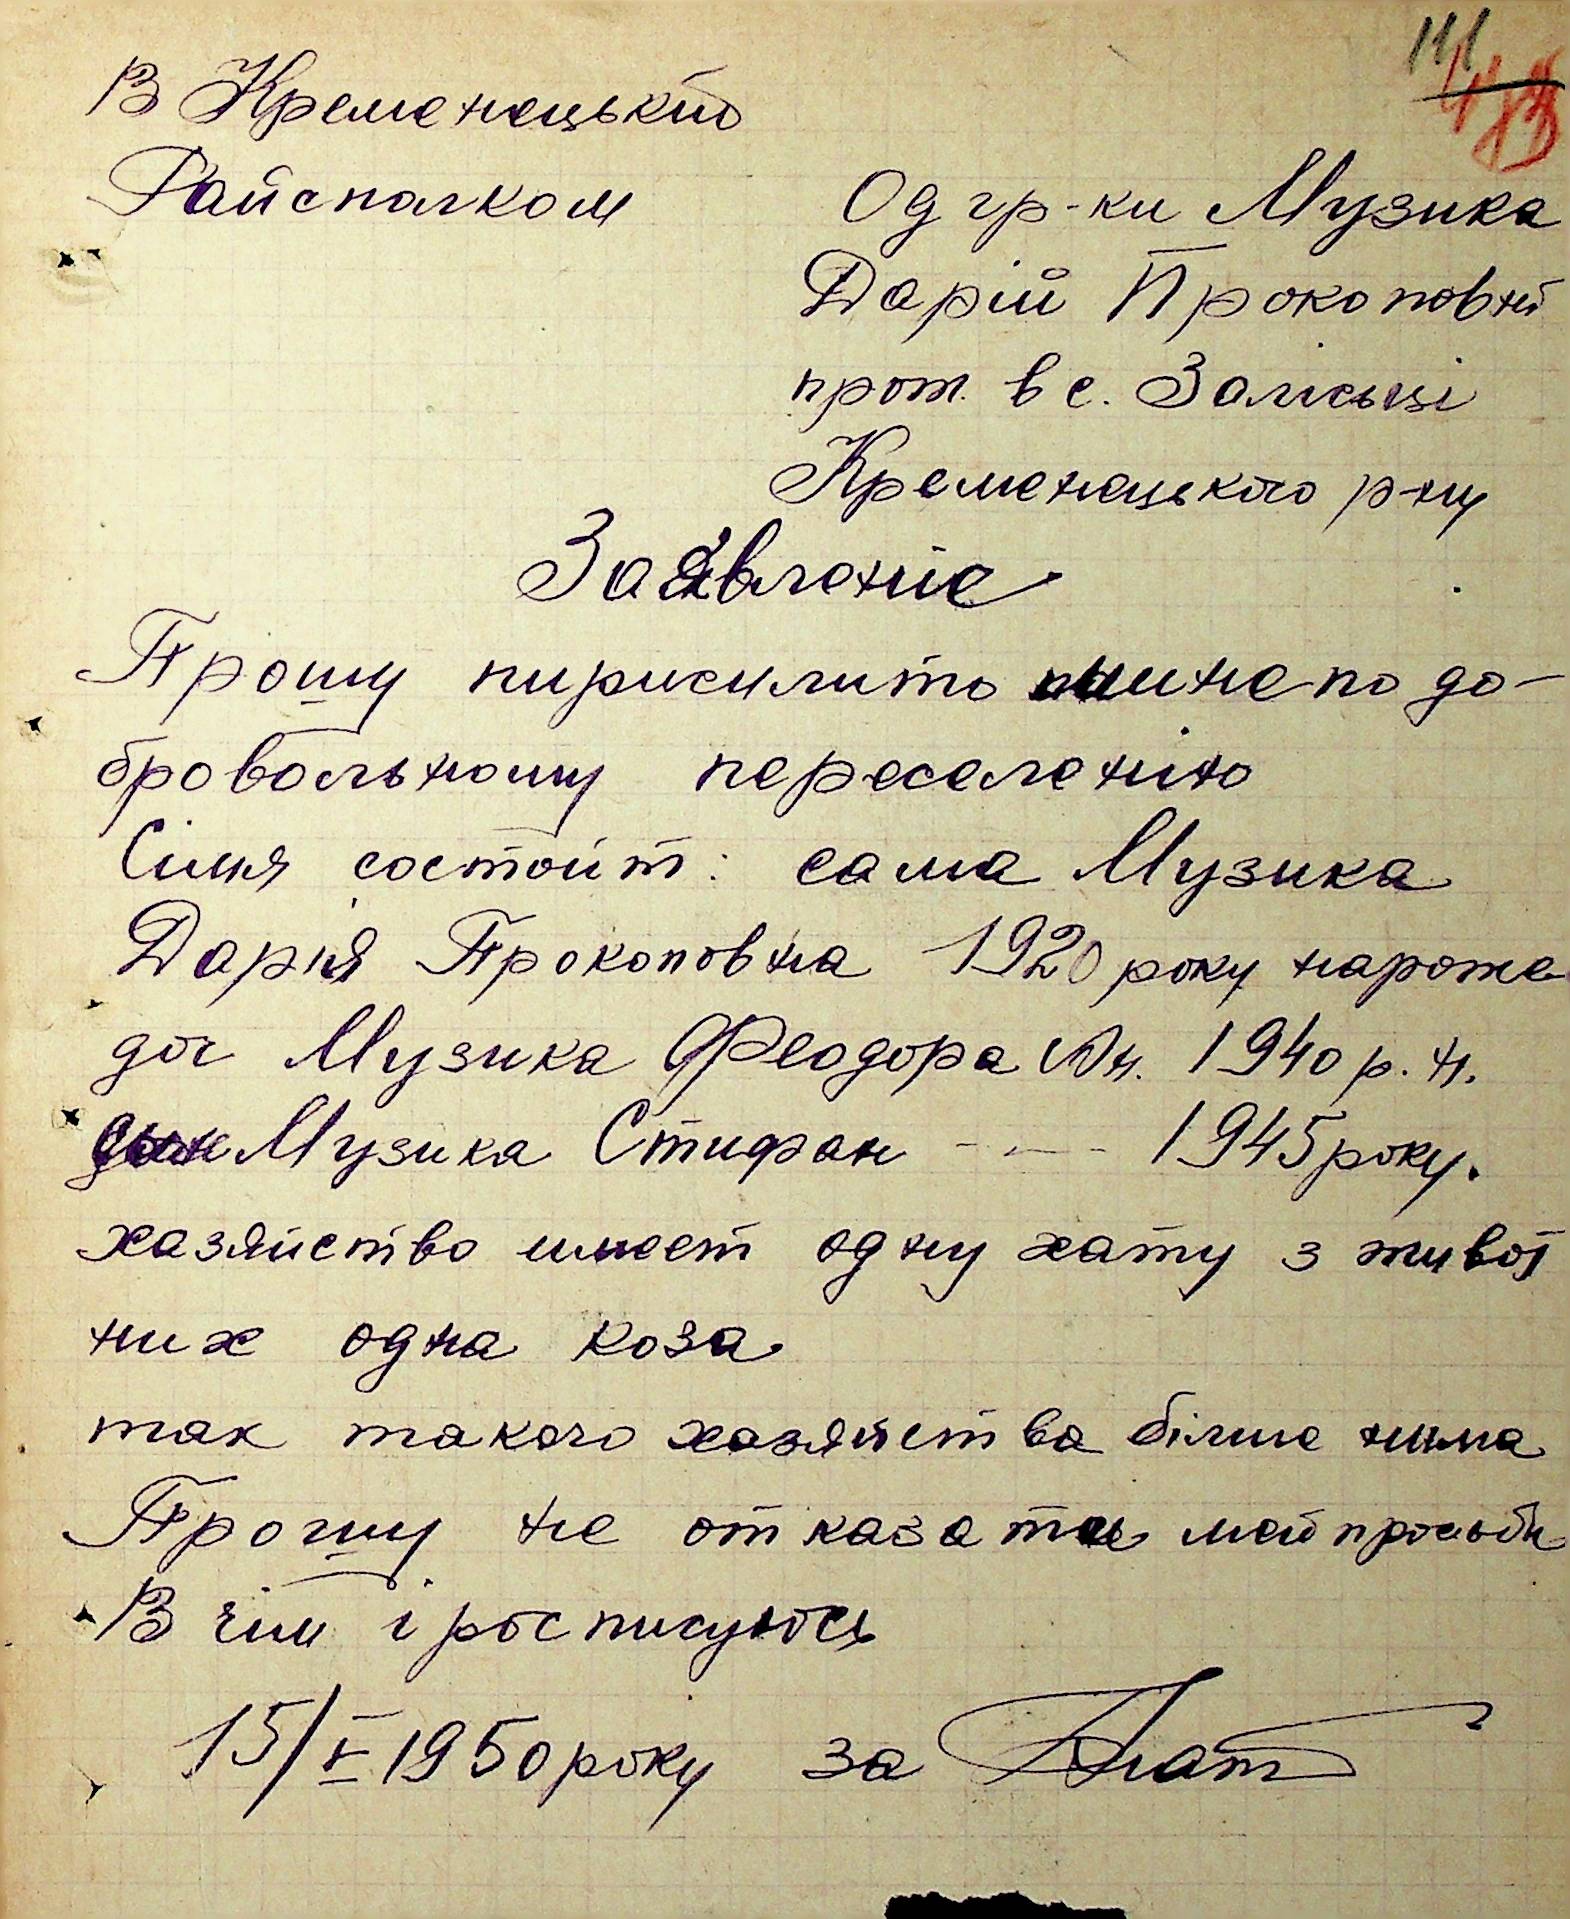 111
В Кременецький
Райсполком
Од гр-ки Музика
Дарій Прокоповній
прож. в с. Заліський
Кременецького р-ну
Заявленіе
Прошу пирисилить мине по до-
бровольному переселенію
Сімя состоит: сама Музика
Дарія Прокоповна 1920 року нароже
доч Музика Феодора Ан. 1940 р. н.
сын Музика Стифан - - - 1945 року.
хазяйство имеет одну хату з живот
них одна коза
так такого хазяйства більше нима
Прошу не отказати моей прозьби
В чім і росписуюсь
15/V 1950 року за